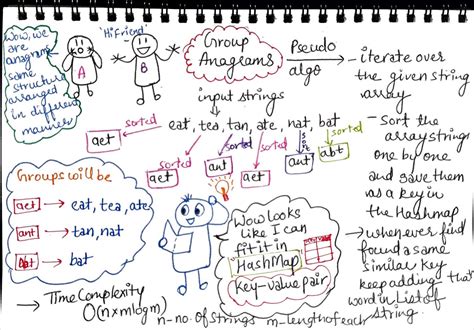 Wow, we
are
anagrams
same
structure
arranged
in different
manner
'Hi Friend'
A
B
Group
Anagrams
Pseudo
algo
input strings
eat, tea, tan, ate, nat, bat
sorted
aet
sorted
aet
sorted
ant
sorted
aet
sorted
ant
sorted
abt
Groups will be
aet → eat, tea, ate
ant → tan, nat
abt → bat
Wow looks
like I can
fit it in
HashMap
Key-value pair
→ Time Complexity
O(n×mlogm)
n-no. of strings m-length of each
string.
- iterate over
the given string
array
- Sort the
array strings
one by one
and save them
as a key in
the Hashmap
→ whenever find
found a same
similar key
keep adding that
word in List of